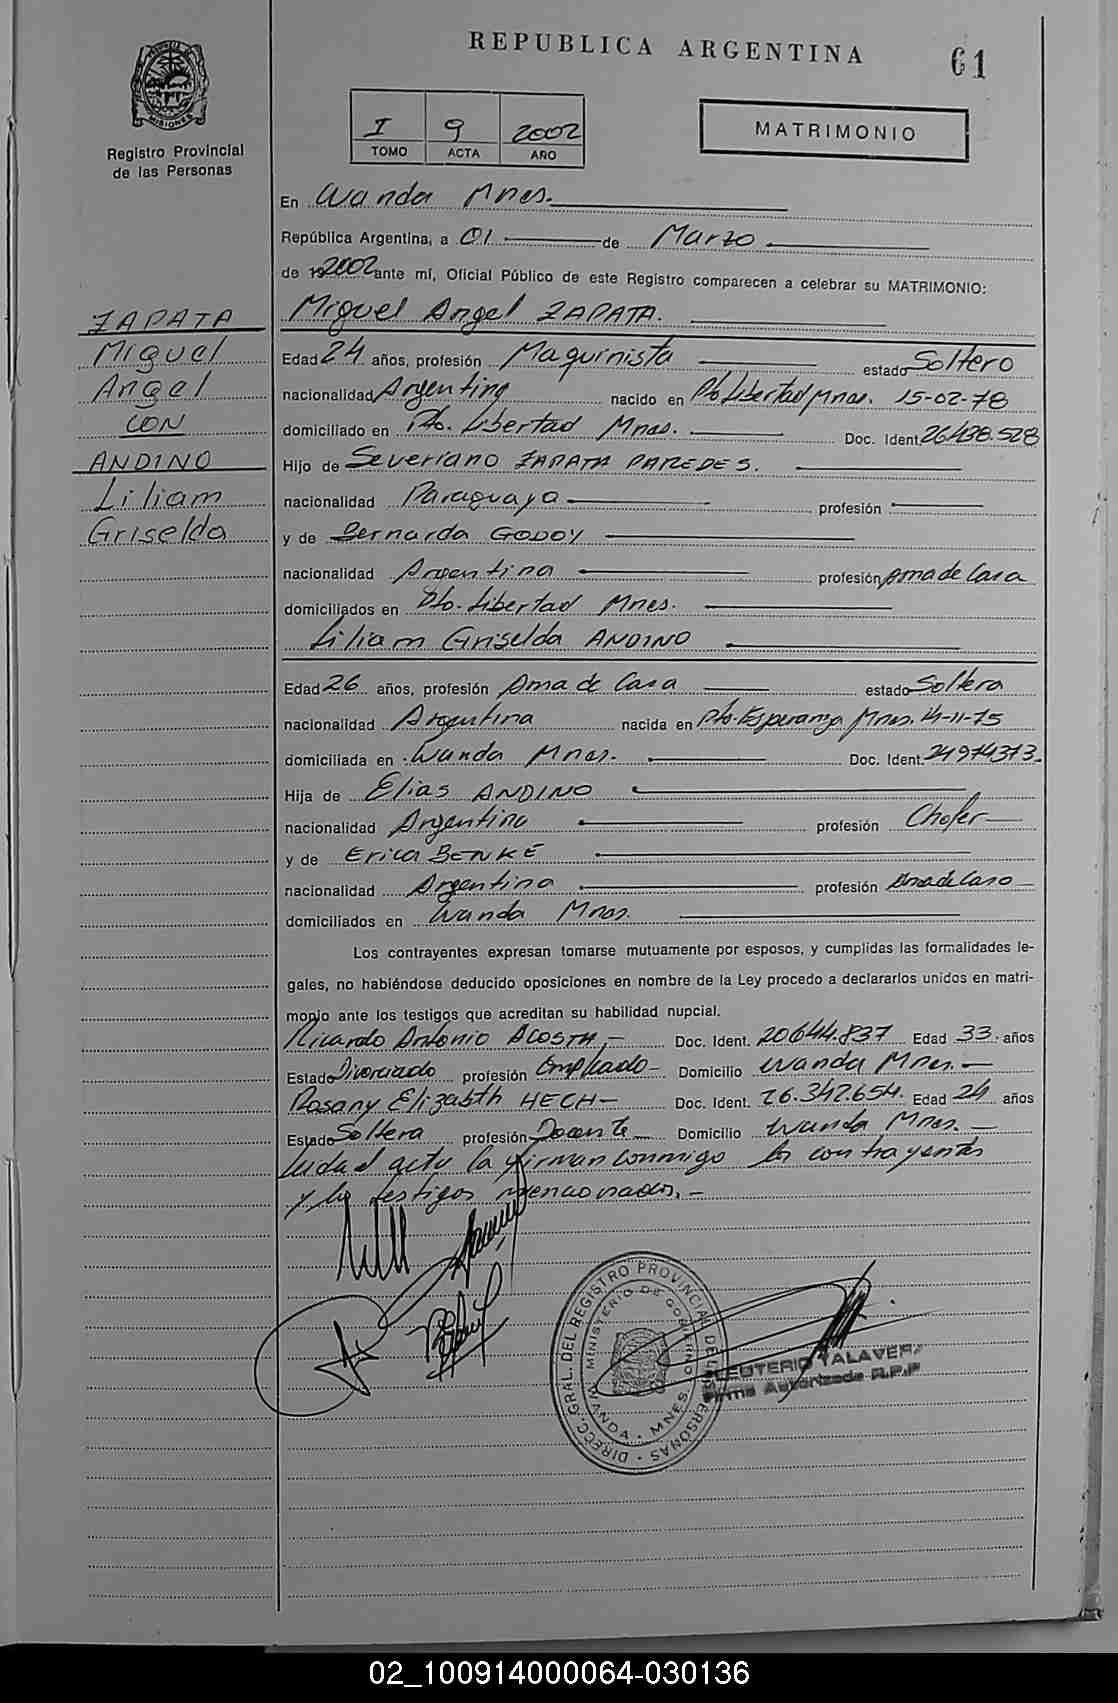 REPUBLICA ARGENTINA
61
MISIONES
Registro Provincial
de las Personas
I 9 2002
TOMO ACTA AÑO
MATRIMONIO
En Wanda Mnes.
República Argentina, a 01 de Marzo
de 192002 ante mí, Oficial Público de este Registro comparecen a celebrar su MATRIMONIO:
ZAPATA
Miguel
Angel
CON
ANDINO
Liliam
Griselda
Miguel Angel ZAPATA.
Edad 24 años, profesión Maquinista estado Soltero
nacionalidad Argentina nacido en Pto Libertad Mnes. 15-02-78
domiciliado en Pto. Libertad Mnes. Doc. Ident. 26438.528
Hijo de Severiano ZAPATA PAREDES.
nacionalidad Paraguaya profesión
y de Bernarda GODOY
nacionalidad Argentina profesión Ama de Casa
domiciliados en Pto. Libertad Mnes.
Liliam Griselda ANDINO
Edad 26 años, profesión Ama de Casa estado Soltera
nacionalidad Argentina nacida en Pto. Esperanza Mnes. 14-11-75
domiciliada en Wanda Mnes. Doc. Ident. 24974373.
Hija de Elias ANDINO
nacionalidad Argentina profesión Chofer
y de Erica BENKE
nacionalidad Argentina profesión Ama de Casa
domiciliados en Wanda Mnes.
Los contrayentes expresan tomarse mutuamente por esposos, y cumplidas las formalidades le-
gales, no habiéndose deducido oposiciones en nombre de la Ley procedo a declararlos unidos en matri-
monio ante los testigos que acreditan su habilidad nupcial.
Ricardo Antonio ACOSTA,- Doc. Ident. 20644.837 Edad 33. años
Estado Divorciado profesión Empleado- Domicilio Wanda Mnes.-
Rosany Elizabth HECH- Doc. Ident. 26.342.654. Edad 24 años
Estado Soltera profesión Docente Domicilio Wanda Mnes.-
acta la firman conmigo los contrayentes
y los testigos mencionados.-
DIRECC. GRAL. DEL REGISTRO PROVINCIAL DE LAS PERSONAS
MINISTERIO DE GOBIERNO
WANDA - MNES.
ELEUTERIO TALAVERA
Firma Autorizada R.P.P
02_100914000064-030136